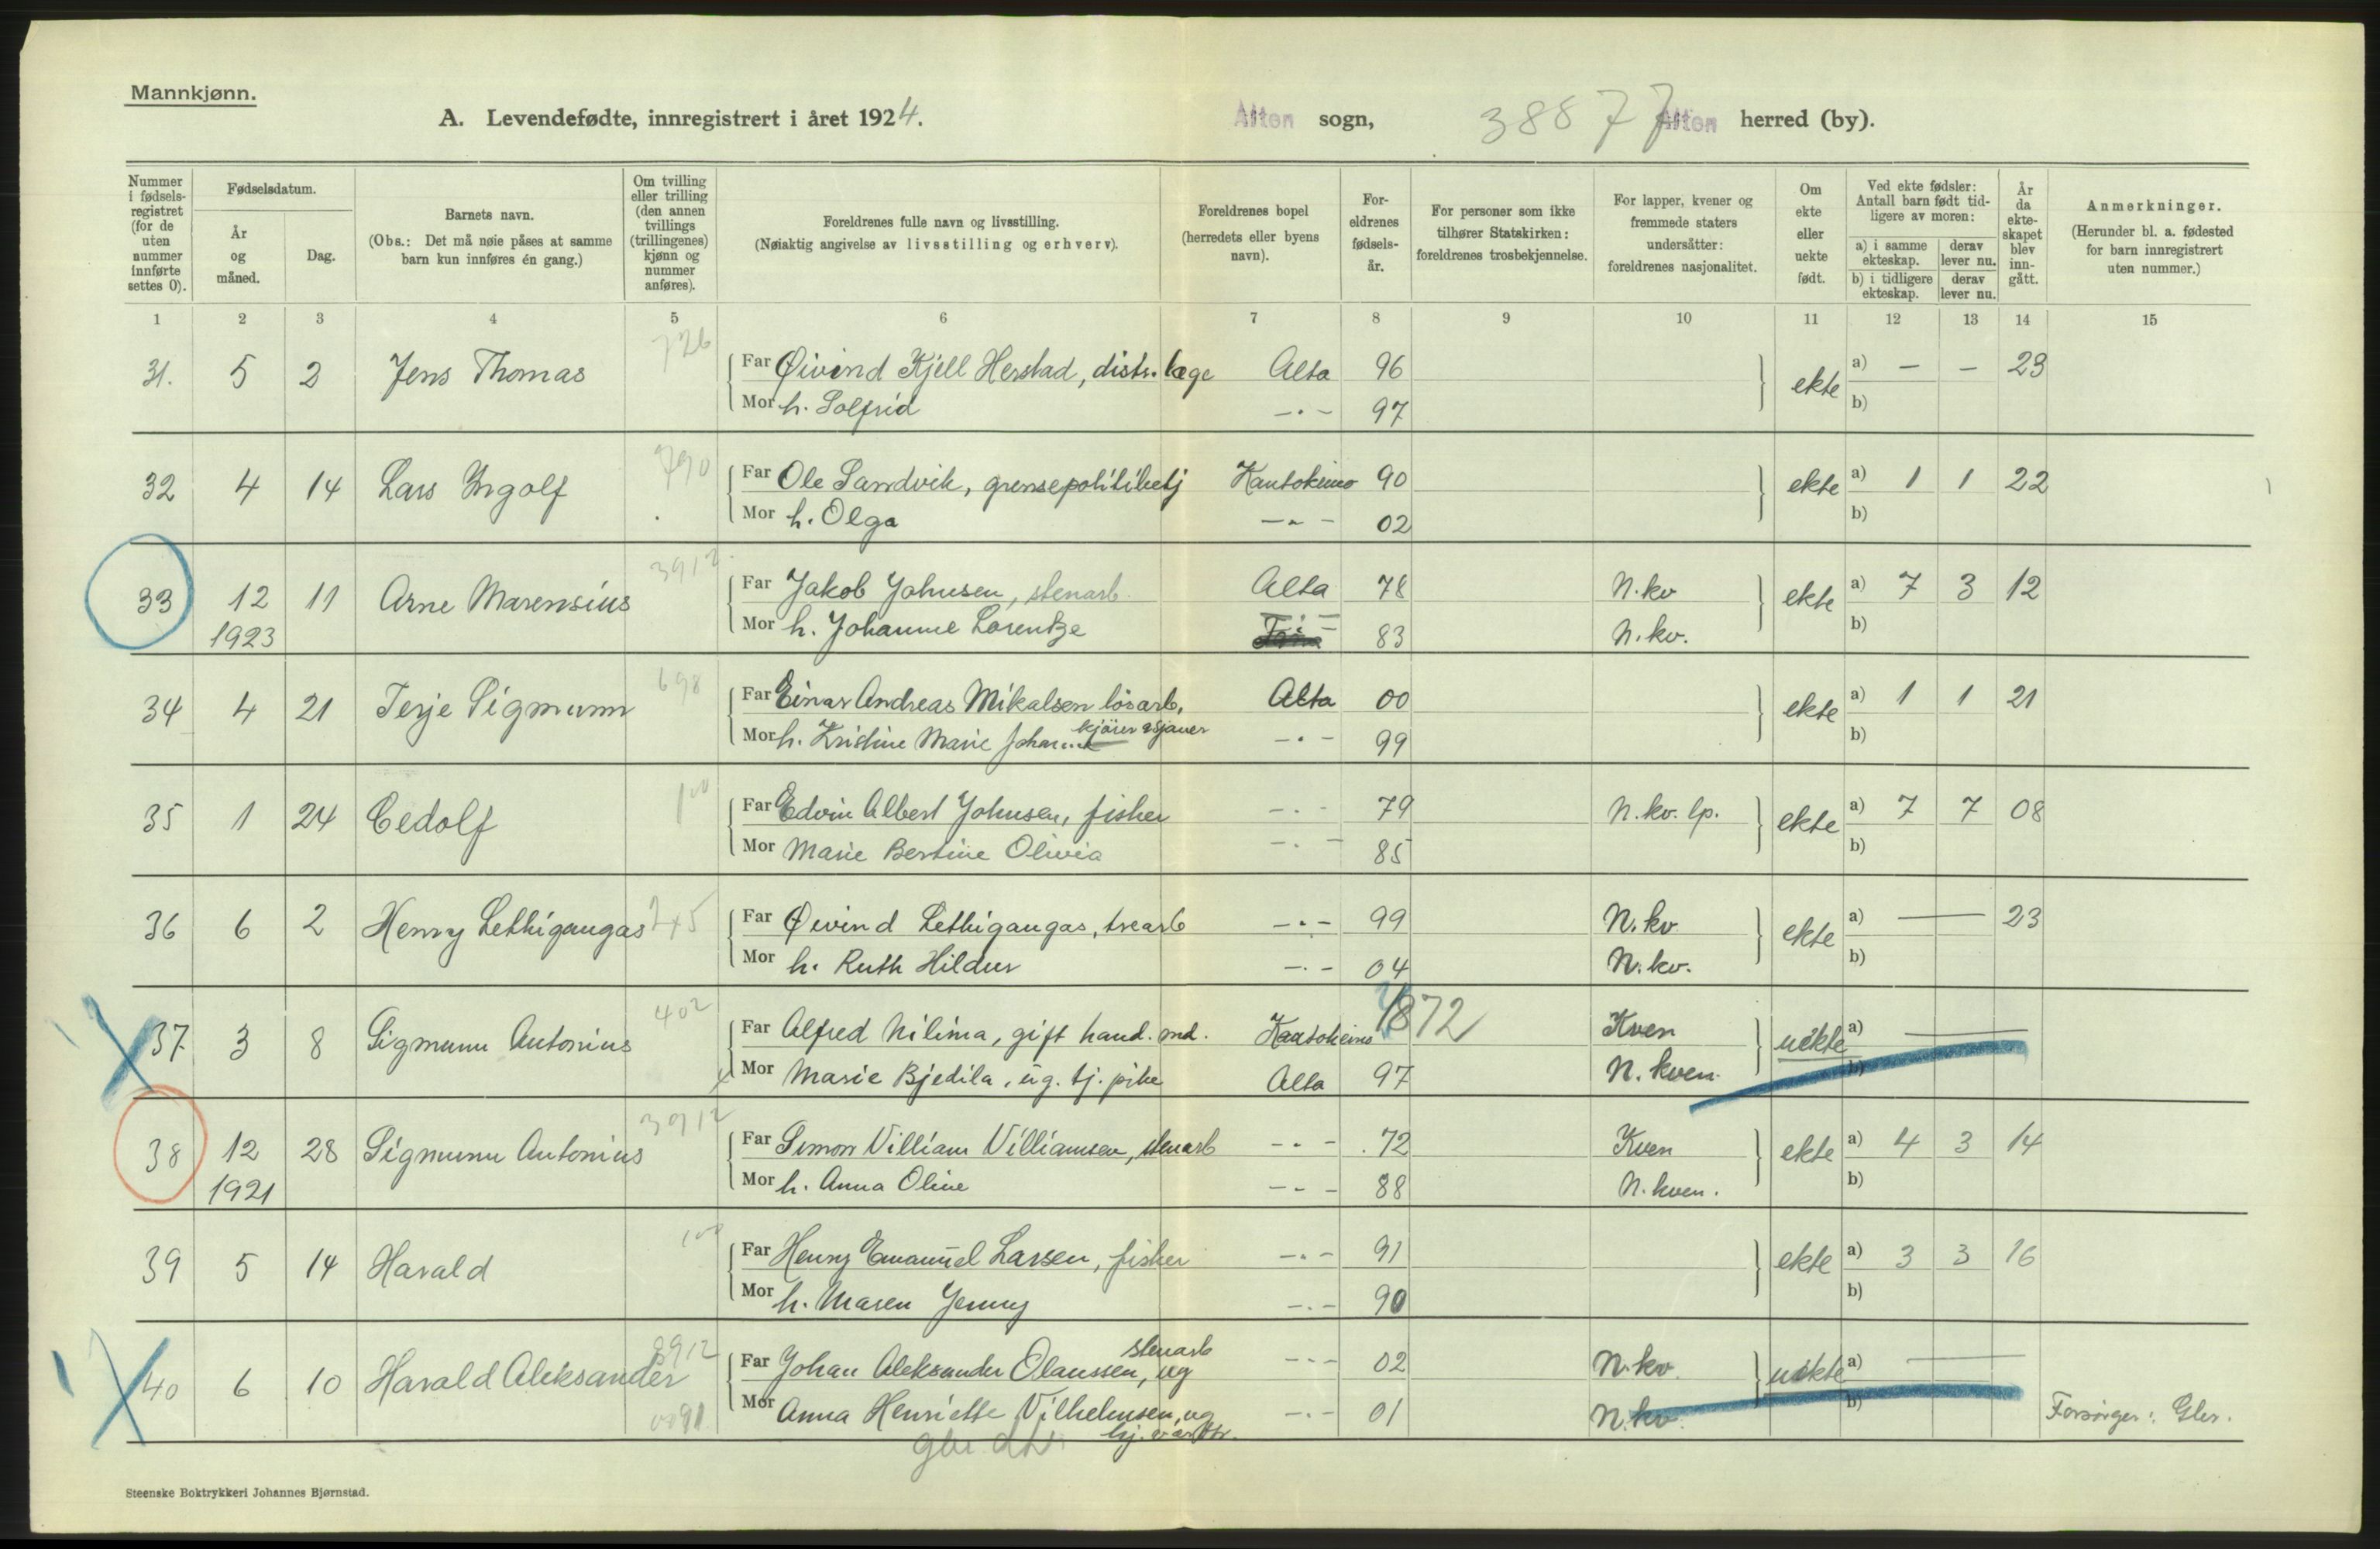 Mannkjønn.
A. Levendefødte, innregistrert i året 1924. Alten sogn, 3887 7 Alten herred (by).
Nummer i fødselsregistret (for de uten nummer innførte settes 0).
Fødselsdatum.
År og måned.
Dag.
Barnets navn.
(Obs.: Det må nøie påses at samme barn kun innføres én gang.)
Om tvilling eller trilling (den annen tvillings (trillingenes) kjønn og nummer anføres).
Foreldrenes fulle navn og livsstilling.
(Nøiaktig angivelse av livsstilling og erhverv).
Foreldrenes bopel (herredets eller byens navn).
Foreldrenes fødselsår.
For personer som ikke tilhører Statskirken: foreldrenes trosbekjennelse.
For lapper, kvener og fremmede staters undersåtter: foreldrenes nasjonalitet.
Om ekte eller uekte født.
Ved ekte fødsler: Antall barn født tidligere av moren:
a) i samme ekteskap. derav lever nu.
b) i tidligere ekteskap. derav lever nu.
År da ekteskapet blev inngått.
Anmerkninger.
(Herunder bl. a. fødested for barn innregistrert uten nummer.)
1 2 3 4 5 6 7 8 9 10 11 12 13 14 15
31. 5 2 Jens Thomas 726 Far Øivind Kjell Herstad, distr. læge Alta 96 ekte a) — — 23
Mor h. Solfrid —〃— 97 b)
32 4 14 Lars Ingolf 790 Far Ole Sandvik, grensepolitibetj Kautokeino 90 ekte a) 1 1 22
Mor h. Olga —〃— 02 b)
33 12 11 Arne Marensius 3912 Far Jakob Johnsen, stenarb. Alta 78 N. kv ekte a) 7 3 12
1923 Mor h. Johanne Lorentze —〃— 83 N. kv. b)
34 4 21 Terje Sigmunn 698 Far Einar Andreas Mikalsen lösarb, Alta 00 ekte a) 1 1 21
kjörer & sjauer
Mor h. Kristine Marie Johanne —〃— 99 b)
35 1 24 Cedolf 100 Far Edvin Albert Johnsen, fisker —〃— 79 N. kv. lp. ekte a) 7 7 08
Mor Marie Bertine Olivia —〃— 85 b)
36 6 2 Henry Lethigangas 745 Far Øivind Lethigangas, trearb —〃— 99 N. kv. ekte a) — 23
Mor h. Ruth Hildur —〃— 04 N. kv. b)
37 3 8 Sigmunn Antonius 402 Far Alfred Nilima, gift hand. md. Kautokeino 1872 Kven uekte a) —
Mor Marie Bjedila, ug. tj. pike Alta 97 N. kven. b)
38 12 28 Sigmunn Antonius 3912 Far Simon Villiam Villiamsen, stenarb —〃— 72 Kven ekte a) 4 3 14
1921 Mor h. Anna Oline —〃— 88 N. kven. b)
39 5 14 Harald 100 Far Henry Emanuel Larsen, fisker —〃— 91 ekte a) 3 3 16
Mor h. Maren Jenny —〃— 90 b)
40 6 10 Harald Aleksander 3912 Far Johan Aleksander Olaussen, stenarb ug —〃— 02 N. kv. uekte a) —
Mor Anna Henriette Vilhelmsen, ug —〃— 01 N. kv. b) Forsörger: Gbr.
Steenske Boktrykkeri Johannes Bjørnstad.